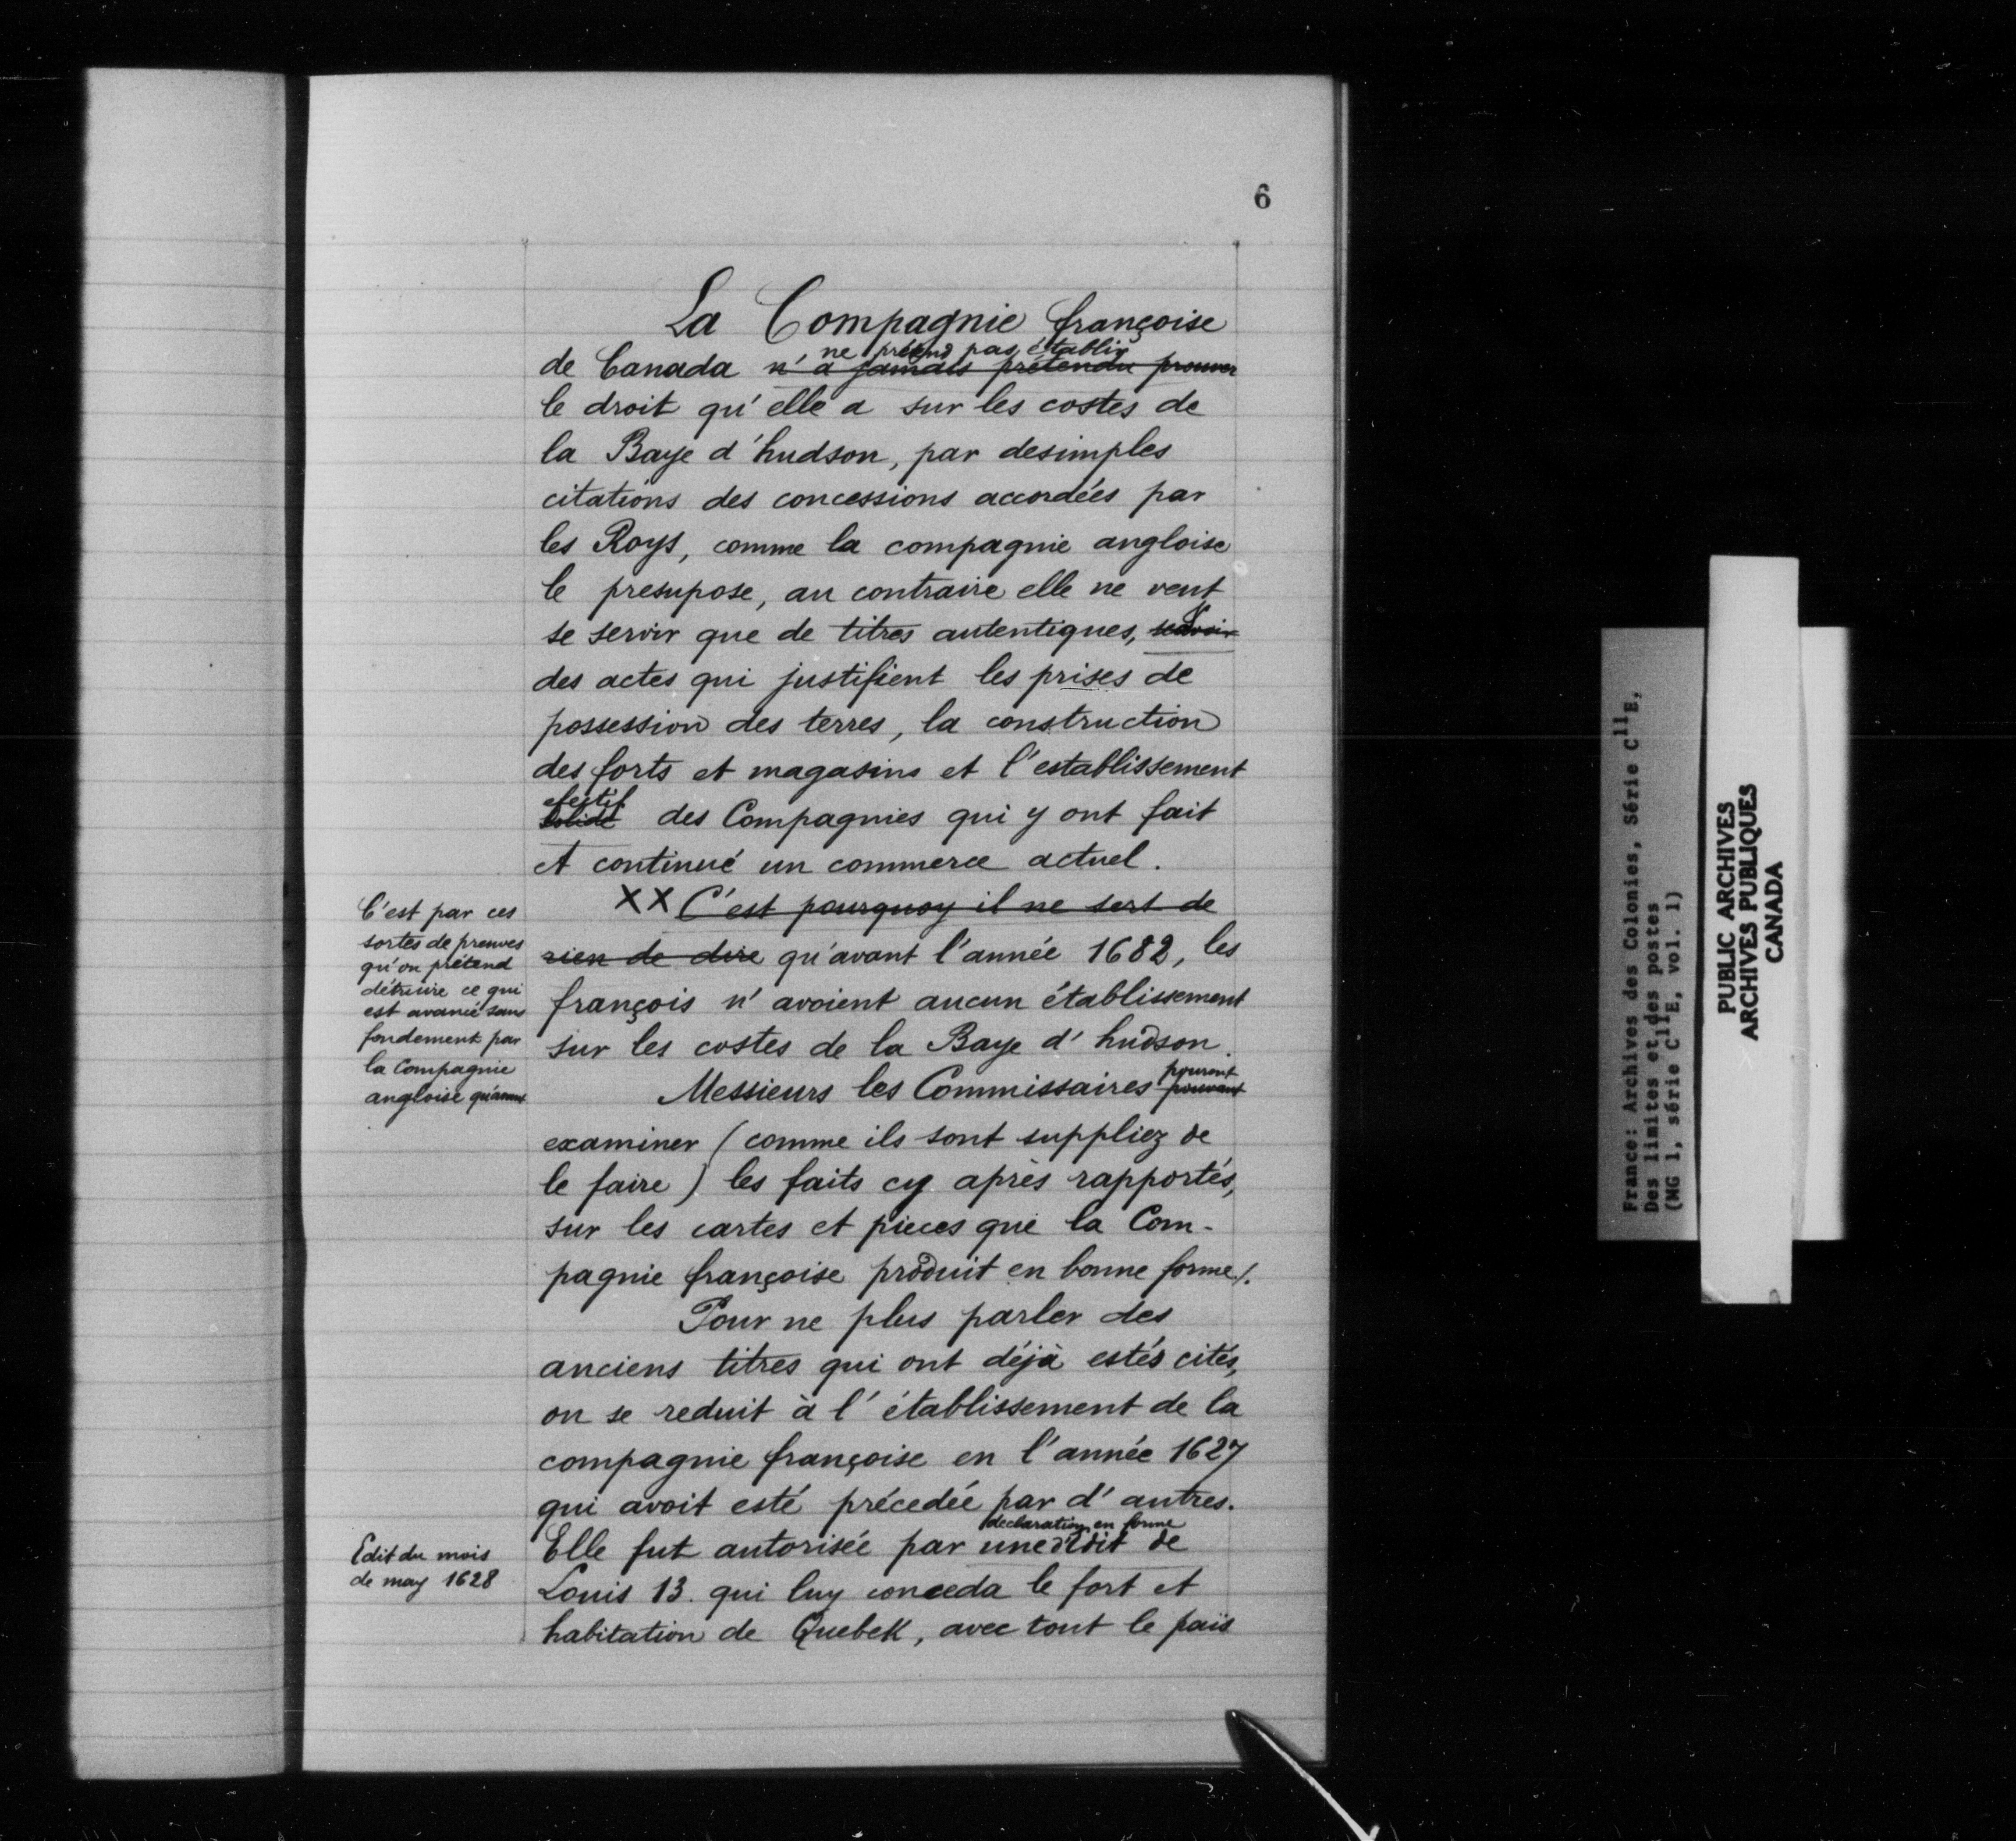 6
La Compagnie françoise
ne prétend pas établir
de Canada n'a jamais prétendu prouver
le droit qu'elle a sur les costes de
la Baye d'hudson, par desimples
citations des concessions accordées par
les Roys, comme la compagnie angloise
le presupose, au contraire elle ne veut
se servir que de titres autentiques,
des actes qui justifient les prises de
possession des terres, la construction
des forts et magasins et l'establissement
efectif
solide des Compagnies qui y ont fait
et continué un commerce actuel.
XX C'est pourquoy il ne sert de
rien de dire qu'avant l'année 1682, les
françois n'avoient aucun établissement
sur les costes de la Baye d'hudson.
C'est par ces
sortes de preuves
qu'on prétend
détruire ce qui
est avancé sans
fondement par
la Compagnie
angloise qu'avant
pouront
Messieurs les Commissaires pouvant
examiner (comme ils sont suppliez de
le faire) les faits cy après rapportés,
sur les cartes et pieces que la Com-
pagnie françoise produit en bonne forme/.
Pour ne plus parler des
anciens titres qui ont déjà estés cités,
on se reduit à l'établissement de la
compagnie françoise en l'année 1627
qui avoit esté précedée par d'autres.
declaration en forme
Elle fut autorisée par une d'édit de
Louis 13. qui luy conceda le fort et
habitation de Quebek, avec tout le païs
Edit du mois
de may 1628
France: Archives des Colonies, Série C11E,
Des limites et des postes
(MG 1, série C11E, vol. 1)
PUBLIC ARCHIVES
ARCHIVES PUBLIQUES
CANADA